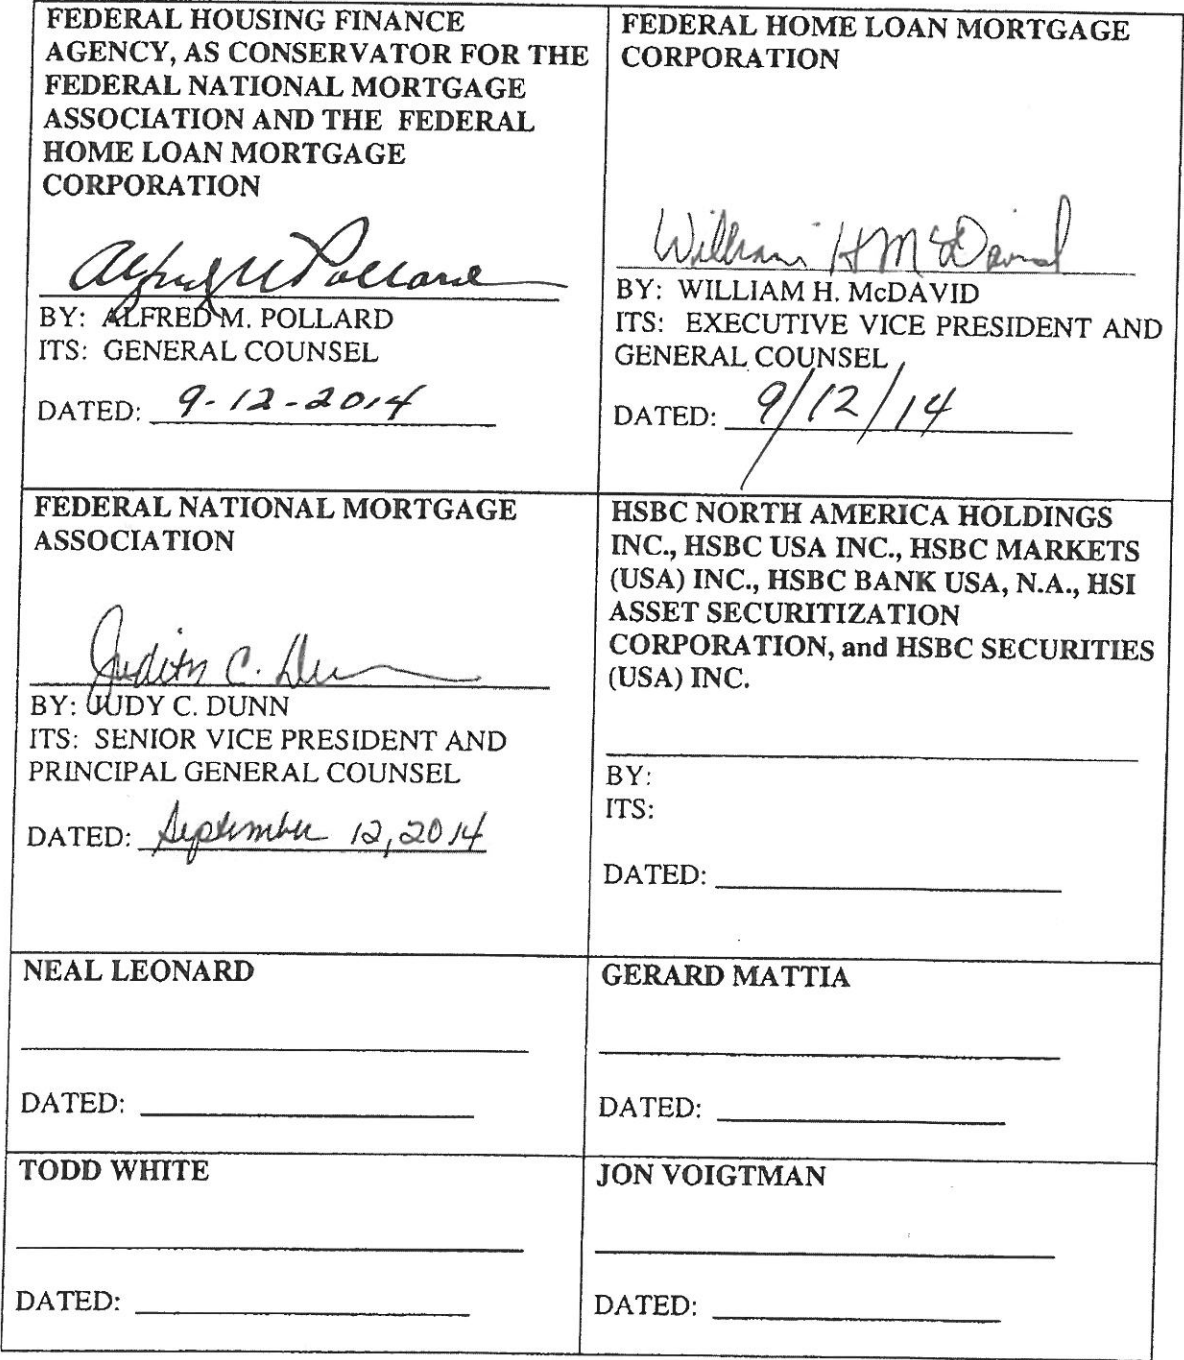 FEDERAL HOUSING FINANCE
AGENCY, AS CONSERVATOR FOR THE
FEDERAL NATIONAL MORTGAGE
ASSOCIATION AND THE FEDERAL
HOME LOAN MORTGAGE
CORPORATION
Alfred M Pollard
BY: ALFRED M. POLLARD
ITS: GENERAL COUNSEL
DATED: 9-12-2014
FEDERAL HOME LOAN MORTGAGE
CORPORATION
William H McDavid
BY: WILLIAM H. McDAVID
ITS: EXECUTIVE VICE PRESIDENT AND
GENERAL COUNSEL
DATED: 9/12/14
FEDERAL NATIONAL MORTGAGE
ASSOCIATION
Judith C. Dunn
BY: JUDY C. DUNN
ITS: SENIOR VICE PRESIDENT AND
PRINCIPAL GENERAL COUNSEL
DATED: September 12, 2014
HSBC NORTH AMERICA HOLDINGS
INC., HSBC USA INC., HSBC MARKETS
(USA) INC., HSBC BANK USA, N.A., HSI
ASSET SECURITIZATION
CORPORATION, and HSBC SECURITIES
(USA) INC.
BY:
ITS:
DATED:
NEAL LEONARD
DATED:
GERARD MATTIA
DATED:
TODD WHITE
DATED:
JON VOIGTMAN
DATED: